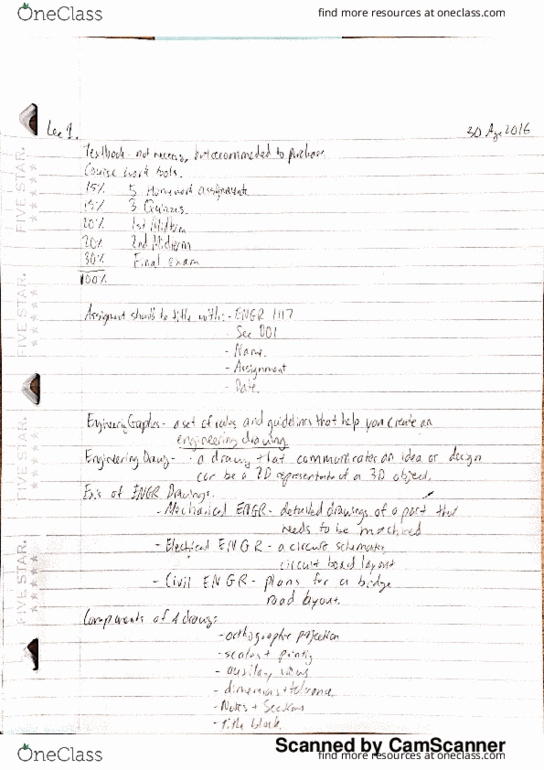 OneClass
find more resources at oneclass.com
Lec 1.
30 Aug 2016
Textbook - not necessary, but recommended to purchase
Course work tools.
15% 5 Homework assignments
15% 3 Quizzes
20% 1st Midterm
20% 2nd Midterm
30% Final exam
100%
Assignment should be title with: - ENGR 1117
- Sec 001
- Name.
- Assignment
- Date.
Engineering Graphics - a set of rules and guidelines that help you create an
engineering drawing
Engineering Drawing - a drawing that communicates an idea or design
can be a 2D representation of a 3D object.
Exs of ENGR Drawings.
- Mechanical ENGR - detailed drawings of a part that
needs to be machined
- Electrical ENGR - a circuit schematic,
circuit board layout
- Civil ENGR - plans for a bridge
road layout.
Components of a drawing:
- orthographic projection
- scales +
- auxiliary views
- dimensions + tolerance
- Notes + Sections
- Title block.
FIVE STAR.
FIVE STAR.
FIVE STAR.
FIVE STAR.
Scanned by CamScanner
OneClass
find more resources at oneclass.com